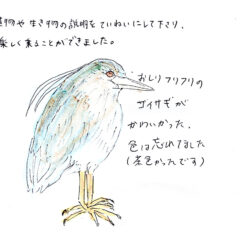 物や生き物の説明をていねいにして下さり、
楽しく来ることができました。
おしりフリフリの
ゴイサギが
かわいかった。
色は忘れてました
(茶色かったです)